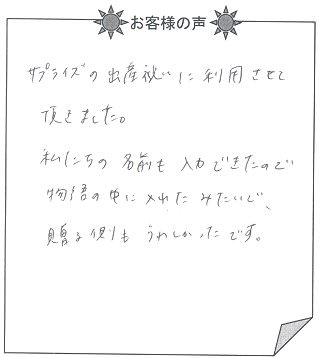 お客様の声
サプライズの出産祝いに利用させて
頂きました。
私たちの名前も入力できたので
物語の中に入れたみたいで、
贈る側もうれしかったです。